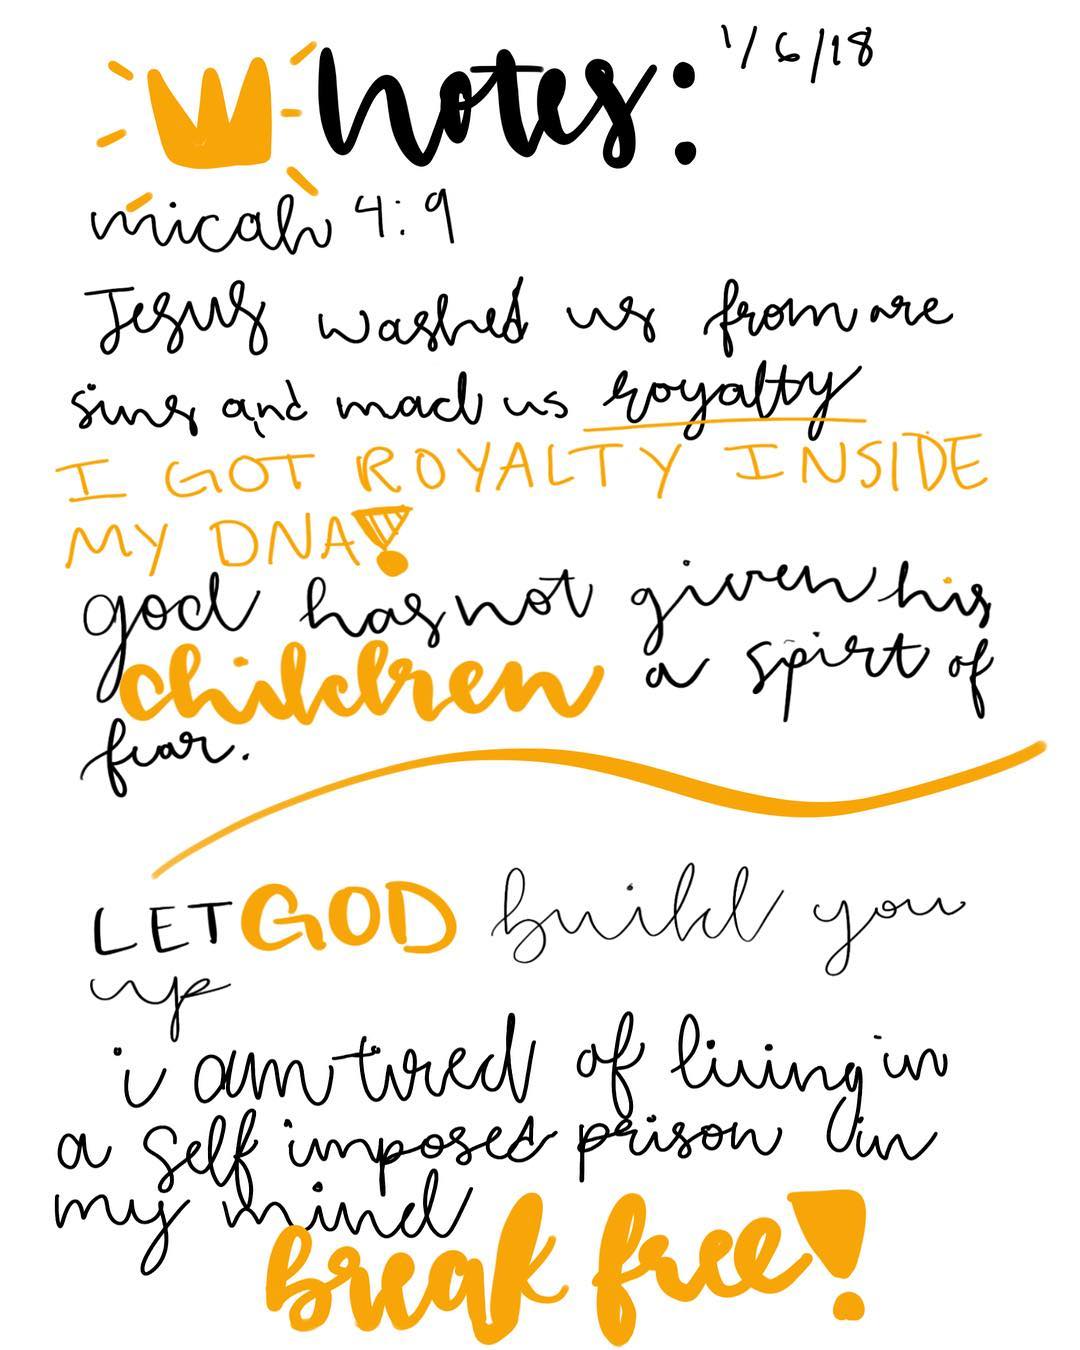 notes: 1/6/18
micah 4:9
Jesus washed us from are
sins and mad us royalty
I GOT ROYALTY INSIDE
MY DNA!
god has not given his
children a spirt of
fear.
LET GOD build you
up
i am tired of living in
a self imposed prison in
my mind
break free!